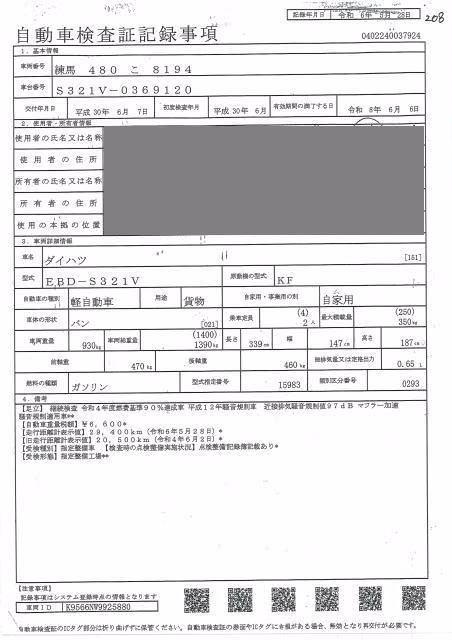 記録年月日 令和 6年 5月 28日
208
自動車検査証記録事項
0402240037924
1. 基本情報
車両番号 練馬 480 こ 8194
車台番号 S321V-0369120
交付年月日 平成 30年 6月 7日 初度検査年月 平成 30年 6月 有効期間の満了する日 令和 8年 6月 6日
2. 使用者・所有者情報
使用者の氏名又は名称
使用者の住所
所有者の氏名又は名称
所有者の住所
使用の本拠の位置
3. 車両詳細情報
車名 ダイハツ [151]
型式 EBD-S321V 原動機の型式 KF
自動車の種別 軽自動車 用途 貨物 自家用・事業用の別 自家用
車体の形状 バン [021] 乗車定員 (4) 2人 最大積載量 (250) 350kg
車両重量 930kg 車両総重量 (1400) 1390kg 長さ 339cm 幅 147cm 高さ 187cm
前軸重 470kg 後軸重 460kg 総排気量又は定格出力 0.65 L
燃料の種類 ガソリン 型式指定番号 15983 類別区分番号 0293
4. 備考
【足立】 継続検査 令和4年度燃費基準90%達成車 平成12年騒音規制車 近接排気騒音規制値97dB マフラー加速
騒音規制適用車**
【自動車重量税額】¥6,600*
【走行距離計表示値】29,400km（令和6年5月28日）
【旧走行距離計表示値】20,500km（令和4年6月2日）
【受検種別】指定整備車 【検査時の点検整備実施状況】点検整備記録簿記載あり*
【受検形態】指定整備工場**
【注意事項】
記録事項はシステム登録時点の情報となります
車両ID K9566NW9925880
自動車検査証のICタグ部分は折り曲げずに保管ください。自動車検査証の券面やICタグに毀損がある場合、無効となり再交付が必要です。